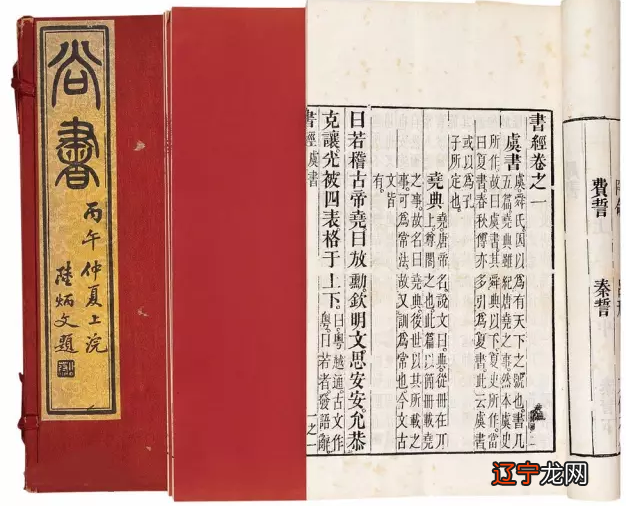 尚書
丙午仲夏上浣
陸炳文題
費誓
秦誓
書經卷之一
虞書
虞舜氏因以爲有天下之號也書凡
五篇堯典雖紀唐堯之事然本虞史
所作故曰虞書其舜典以下夏史所作當
曰夏書春秋傳亦多引爲夏書此云虞書
或以爲孔
子所定也
堯典
堯唐帝名說文曰典從冊在丌
上尊閣之也此篇以簡冊載堯
之事故名曰堯典後世以其所載之
事可爲常法故又訓爲常也今文古
文皆
有
曰若稽古帝堯曰放勳欽明文思安安允恭
克讓光被四表格于上下
曰粵越通古文作
粵曰若者發語辭
書經虞書
一之一
辽宁龙网